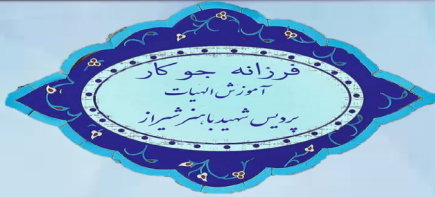 فرزانه جوکار
آموزش الهیات
پردیس شهید باهنر شیراز